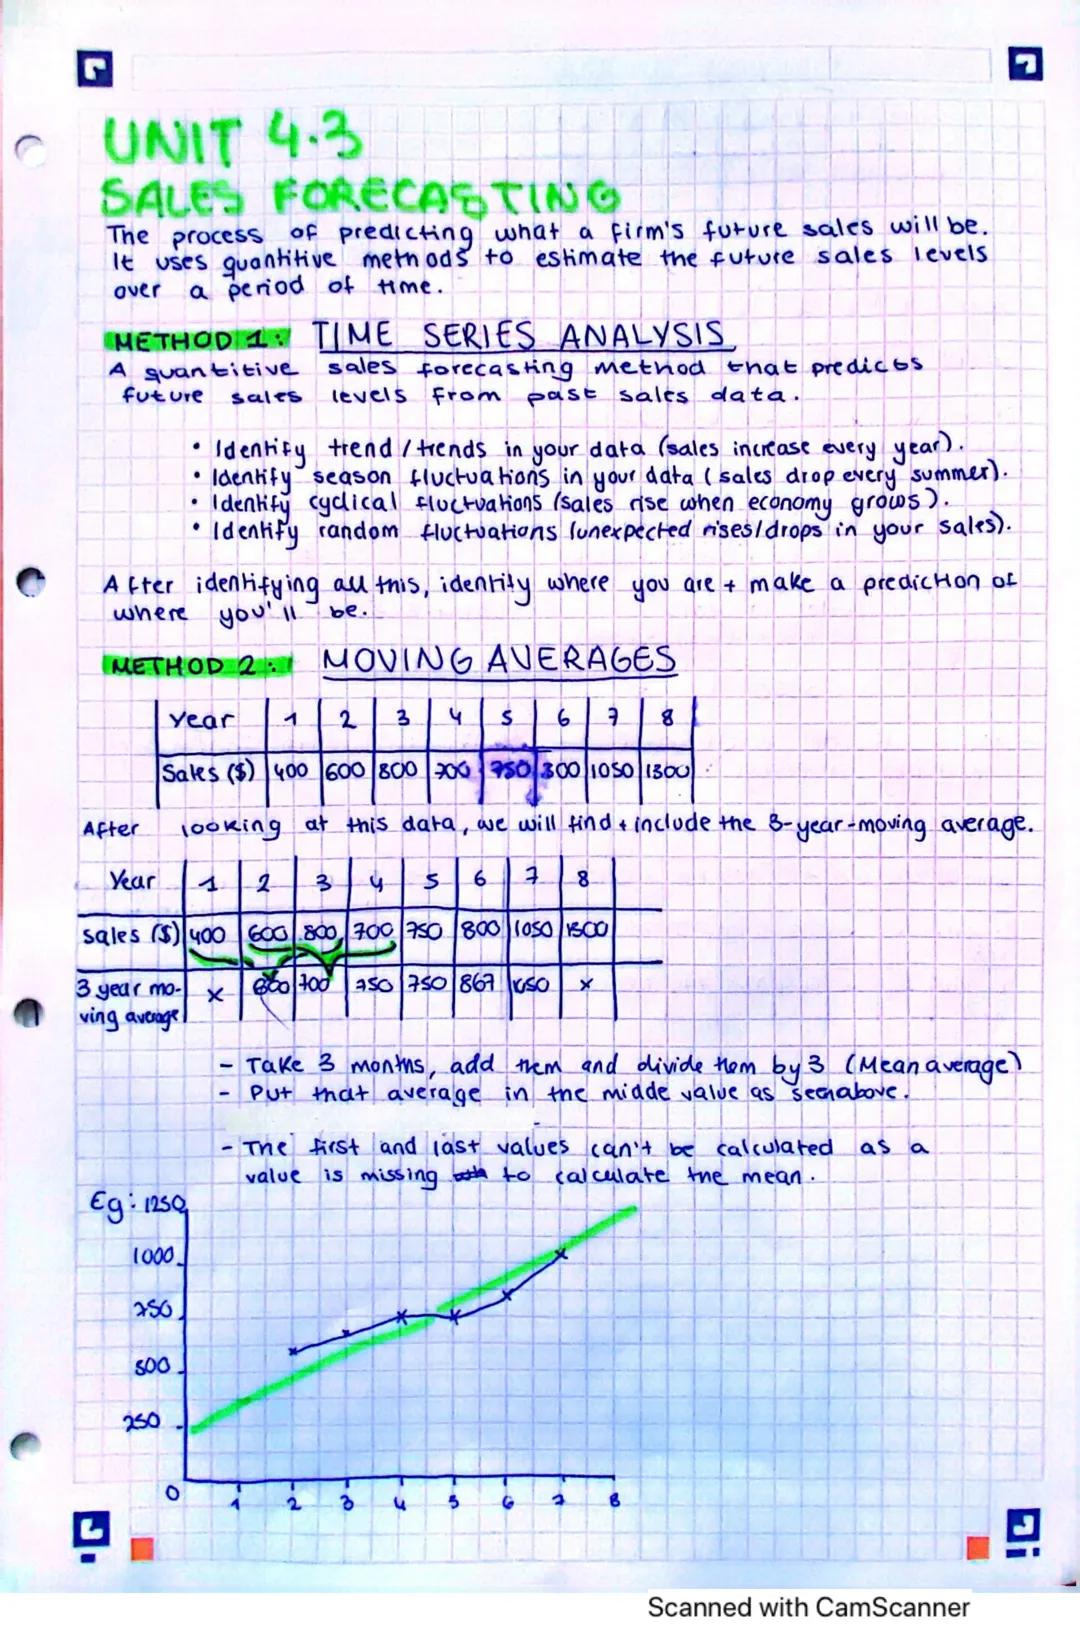 UNIT 4.3
SALES FORECASTING
The process of predicting what a firm's future sales will be.
It uses quantitive methods to estimate the future sales levels
over a period of time.
METHOD 1: TIME SERIES ANALYSIS
A quantitive sales forecasting method that predicts
future sales levels from past sales data.
• Identify trend / trends in your data (sales increase every year).
• Identify season fluctuations in your data (sales drop every summer).
• Identify cyclical fluctuations (sales rise when economy grows).
• Identify random fluctuations (unexpected rises/drops in your sales).
After identifying all this, identity where you are + make a prediction of
where you'll be.
METHOD 2: MOVING AVERAGES
Year 1 2 3 4 5 6 7 8
Sales ($) 400 600 800 700 750 300 1050 1300
After looking at this data, we will find + include the 3-year-moving average.
Year 1 2 3 4 5 6 7 8
Sales ($) 400 600 800 700 750 800 1050 1300
3 year mo- x 600 700 750 750 867 1050 x
ving average
- Take 3 months, add them and divide them by 3 (Mean average)
- Put that average in the midde value as seen above.
- The first and last values can't be calculated as a
value is missing to calculate the mean.
Eg: 1250
1000
750
500
250
0 1 2 3 4 5 6 7 8
Scanned with CamScanner